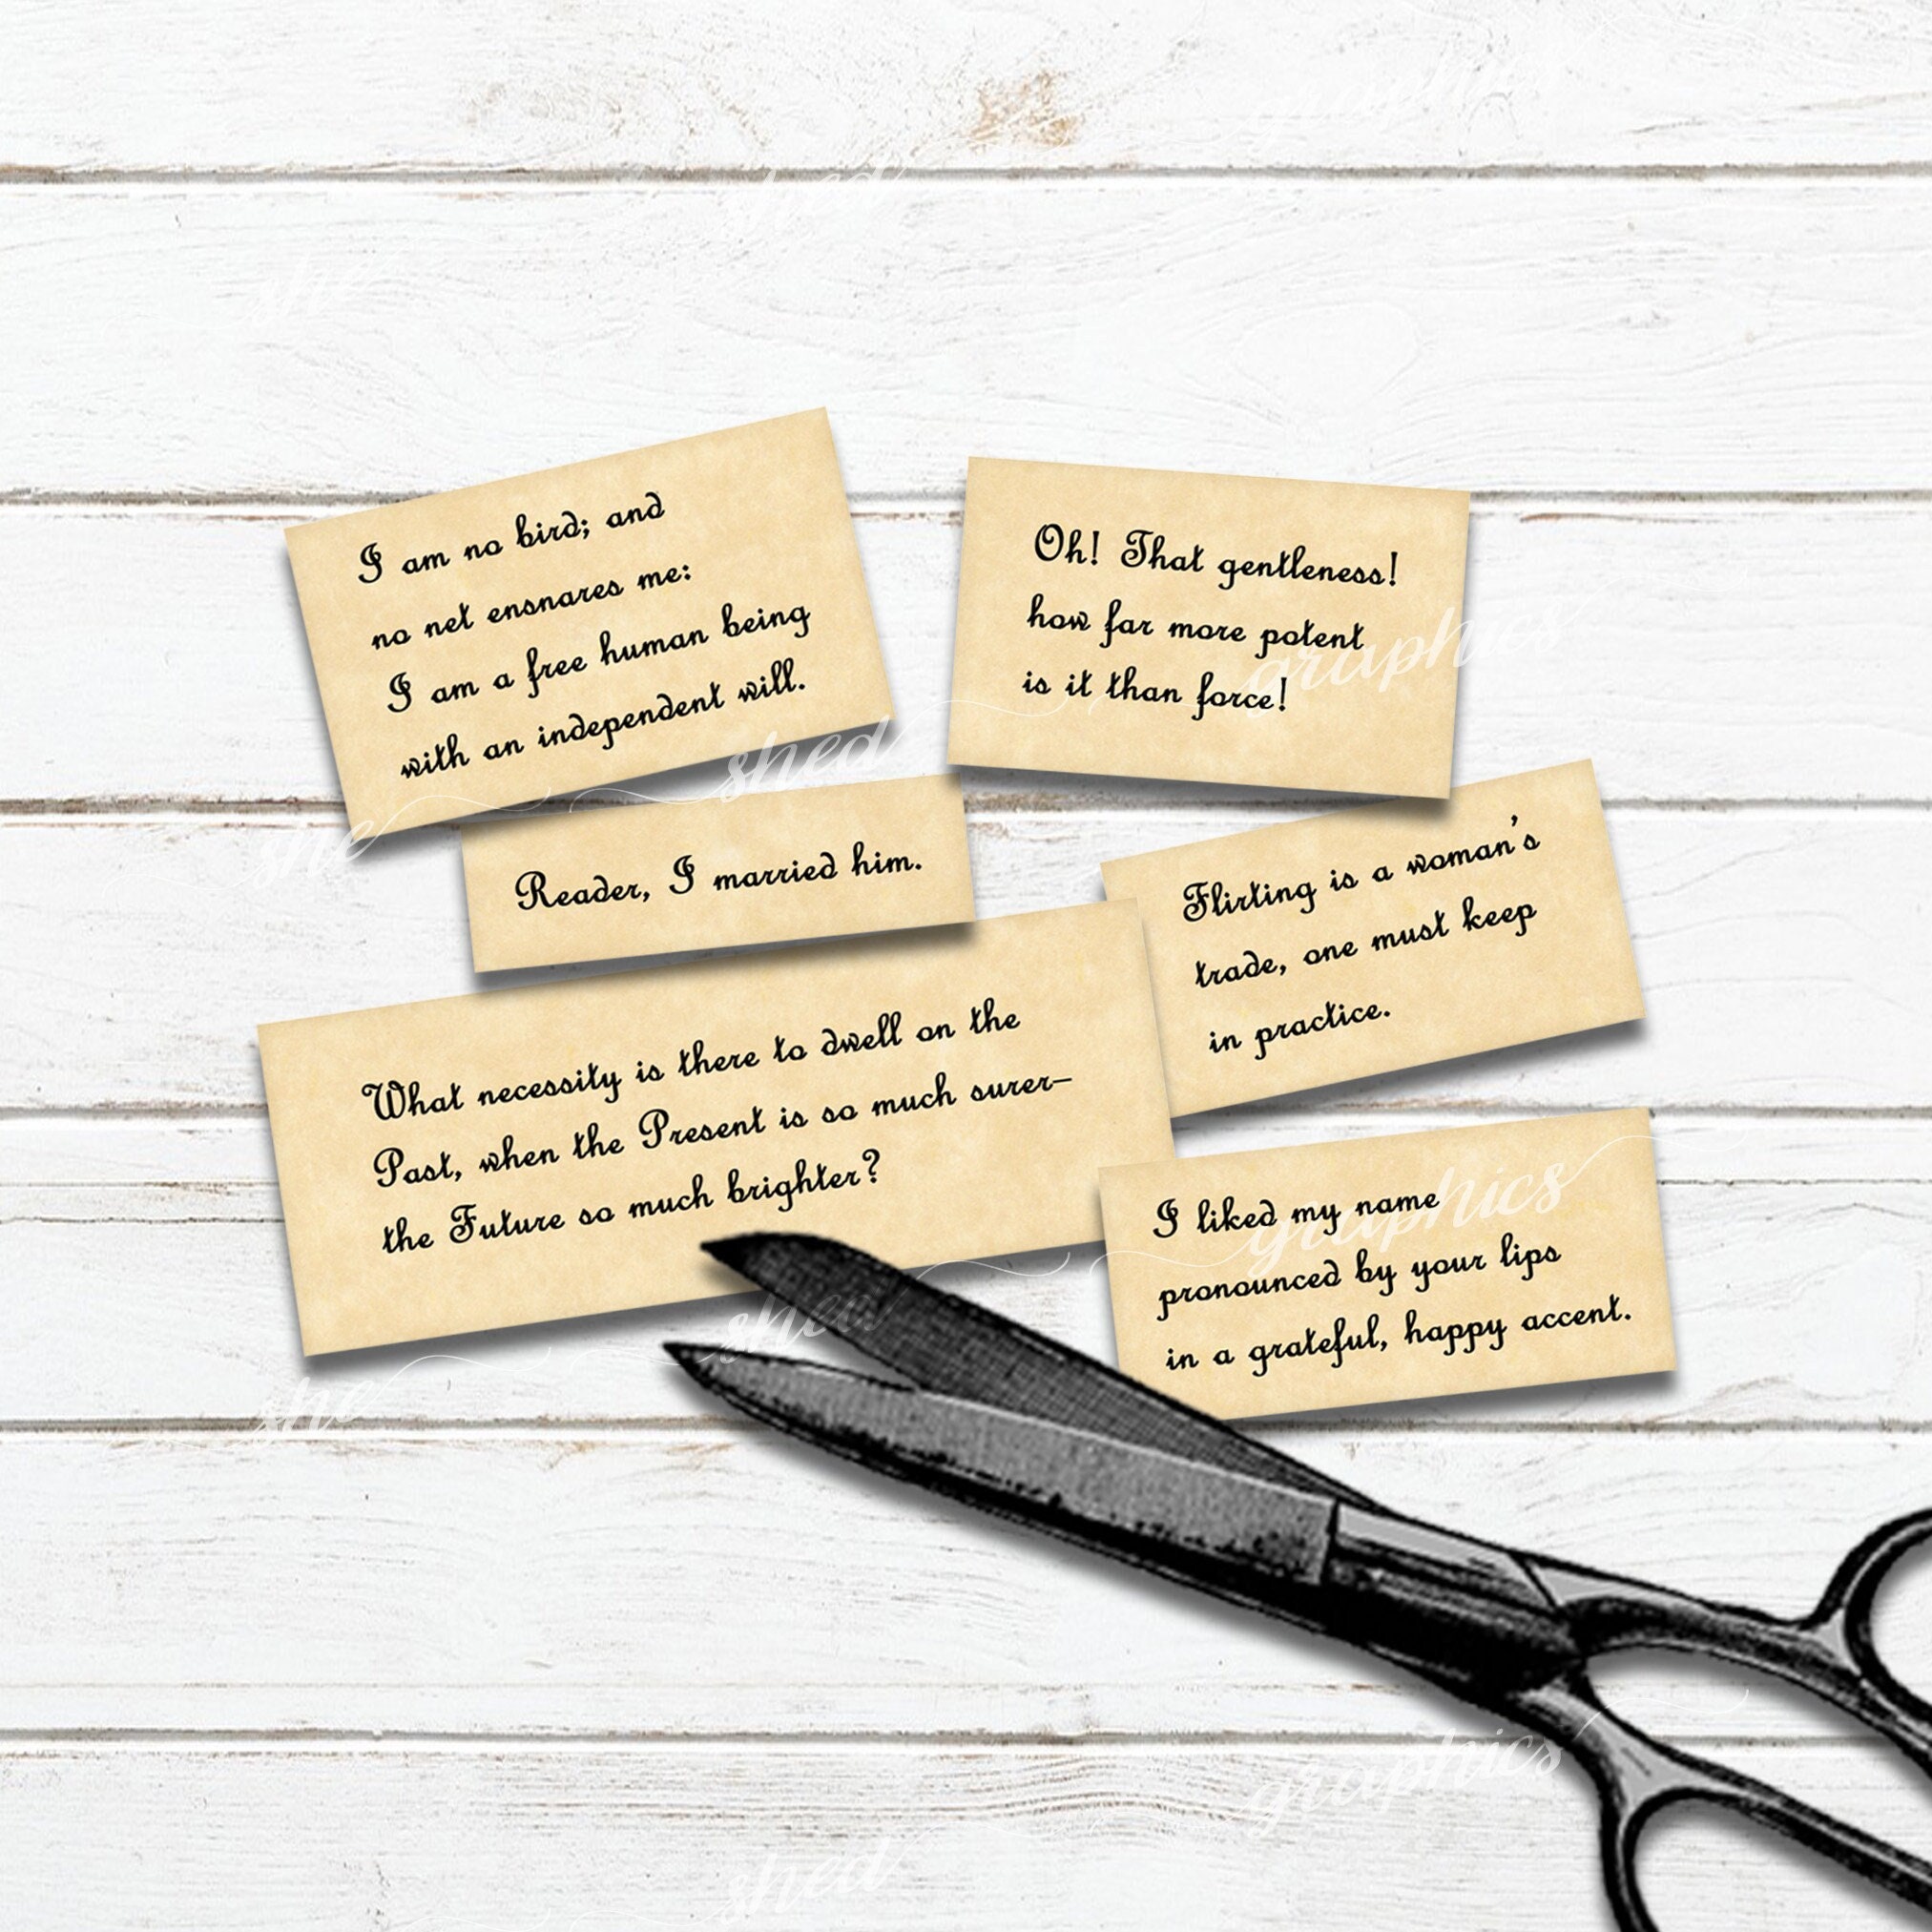 I am no bird; and
no net ensnares me:
I am a free human being
with an independent will.
Oh! That gentleness!
how far more potent
is it than force!
Reader, I married him.
Flirting is a woman's
trade, one must keep
in practice.
What necessity is there to dwell on the
Past, when the Present is so much surer–
the Future so much brighter?
I liked my name
pronounced by your lips
in a grateful, happy accent.
she shed graphics
she shed graphics
she shed graphics
shed graphics